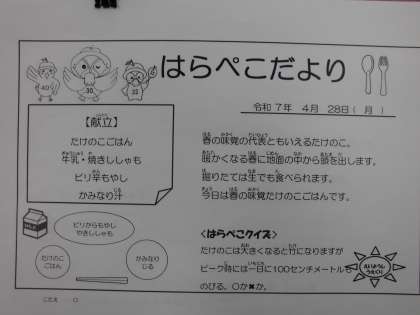 はらぺこだより
令和７年　４月　２８日（月）
【献立】
たけのこごはん
牛乳・焼きししゃも
ピリ辛もやし
かみなり汁
春の味覚の代表ともいえるたけのこ。
暖かくなる春に地面の中から頭を出します。
掘りたては生でも食べられます。
今日は春の味覚たけのこごはんです。
ピリからもやし
やきししゃも
たけのこ
ごはん
かみなり
じる
<はらぺこクイズ>
たけのこは大きくなると竹になりますが
ピーク時には一日に100センチメートルも
のびる。○か✖か。
こたえ　○